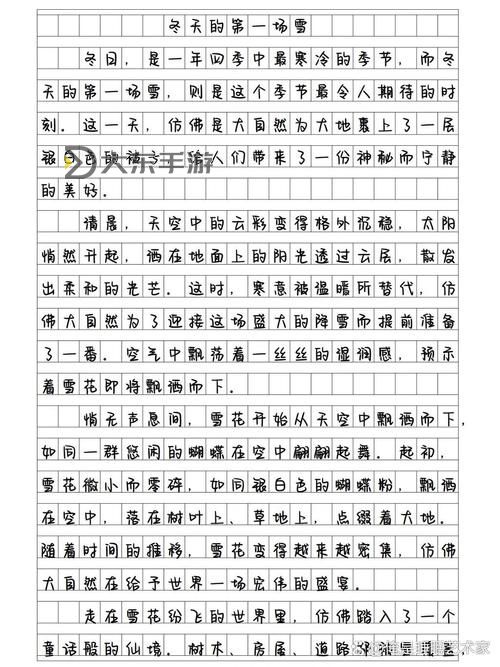 冬天的第一场雪
冬日，是一年四季中最寒冷的季节，而冬
天的第一场雪，则是这个季节最令人期待的时
刻．这一天，仿佛是大自然为大地裹上了一层
银白色的被子，给人们带来了一份神秘而宁静
大东手游
的美好．
清晨，天空中的云彩变得格外沉稳，太阳
悄然升起，洒在地面上的阳光透过云层，散发
出柔和的光芒．这时，寒意被温暖所替代，仿
佛大自然为了迎接这场盛大的降雪而提前准备
了一番．空气中飘荡着一丝丝的湿润感，预示
着雪花即将飘洒而下．
悄无声息间，雪花开始从天空中飘洒而下，
如同一群悠闲的蝴蝶在空中翩翩起舞．起初，
雪花微小而零碎，如同银白色的蝴蝶粉，飘洒
在空中，落在树叶上、草地上，点缀着大地．
随着时间的推移，雪花变得越来越密集，仿佛
大自然在给予世界一场宏伟的盛宴．
走在雪花纷飞的世界里，仿佛踏入了一个
童话般的仙境．树木、房屋、道路